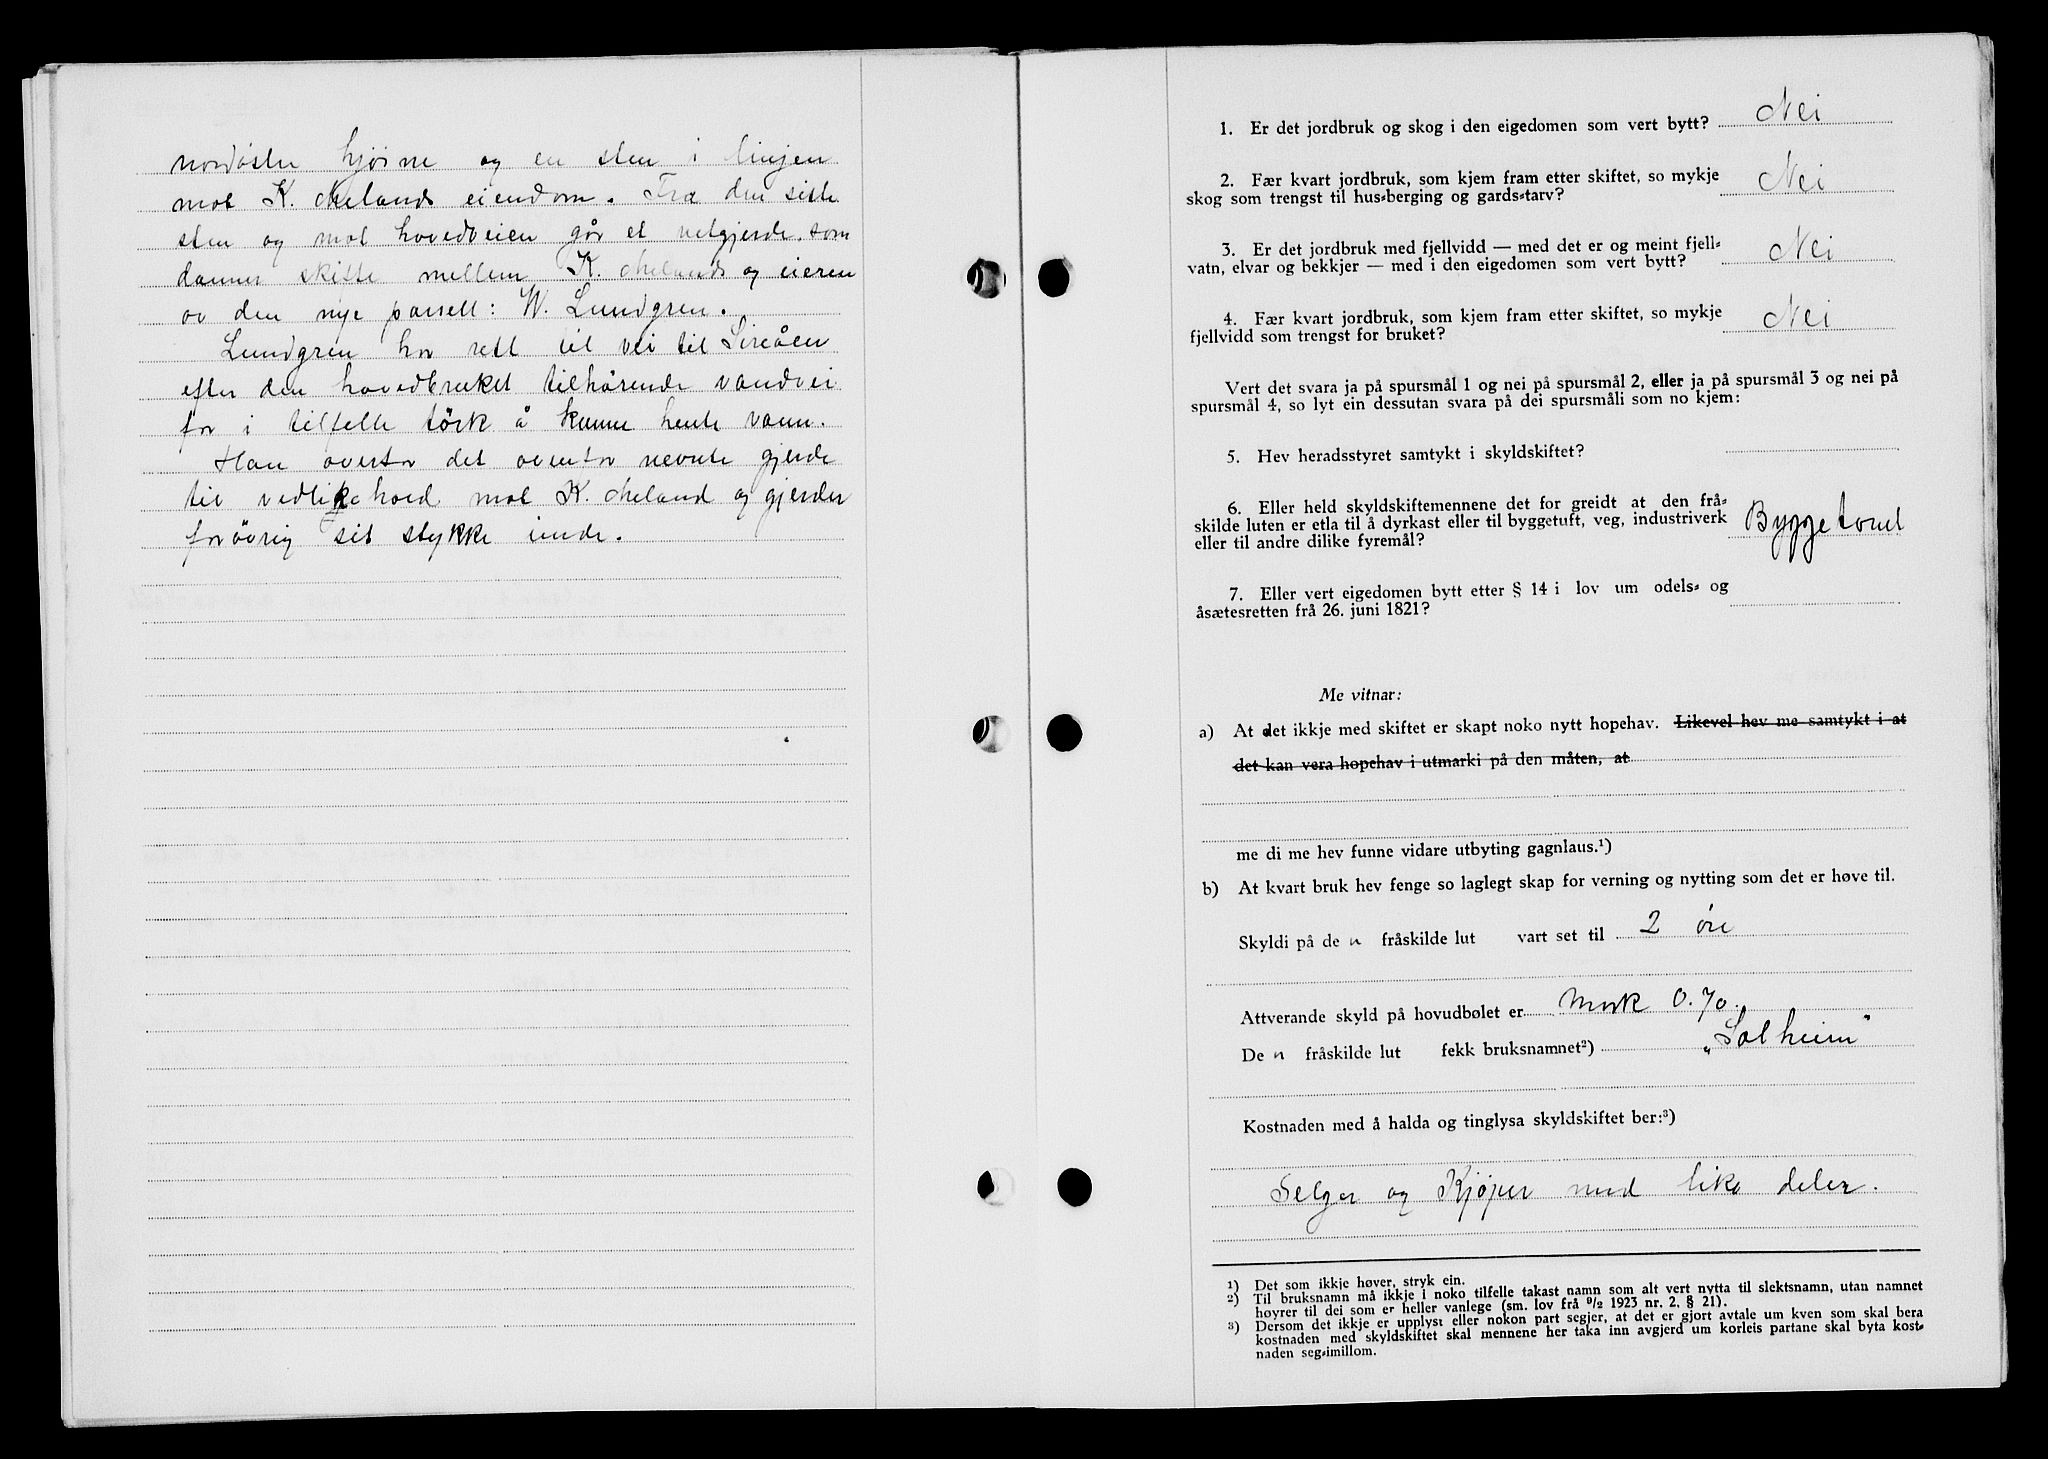 nordöstre hjörne og en sten i linjen
mot K. Meland's eiendom. Fra den siste
sten og mot hovedveien går et netgjerde som
danner skille mellem K. Melands og eieren
av den nye parsell: W. Lundgren.
Lundgren har rett til vei til Sireåen
efter den hovedbruket tilhörende vandvei
for i tilfelle törk å kunne hente vann.
Han overtar det ovenfor nevnte gjerde
til vedlikehold mot K. Meland og gjerder
forövrig sit stykke inde.
1. Er det jordbruk og skog i den eigedomen som vert bytt? Nei
2. Fær kvart jordbruk, som kjem fram etter skiftet, so mykje
skog som trengst til hus-berging og gards-tarv? Nei
3. Er det jordbruk med fjellvidd — med det er og meint fjell-
vatn, elvar og bekkjer — med i den eigedomen som vert bytt? Nei
4. Fær kvart jordbruk, som kjem fram etter skiftet, so mykje
fjellvidd som trengst for bruket? Nei
Vert det svara ja på spursmål 1 og nei på spursmål 2, eller ja på spursmål 3 og nei på
spursmål 4, so lyt ein dessutan svara på dei spursmåli som no kjem:
5. Hev heradsstyret samtykt i skyldskiftet?
6. Eller held skyldskiftemennene det for greidt at den frå-
skilde luten er etla til å dyrkast eller til byggetuft, veg, industriverk Byggetomt
eller til andre dilike fyremål?
7. Eller vert eigedomen bytt etter § 14 i lov um odels- og
åsætesretten frå 26. juni 1821?
Me vitnar:
a) At det ikkje med skiftet er skapt noko nytt hopehav. Likevel hev me samtykt i at
det kan vera hopehav i utmarki på den måten, at
me di me hev funne vidare utbyting gagnlaus.¹)
b) At kvart bruk hev fenge so laglegt skap for verning og nytting som det er høve til.
Skyldi på de n fråskilde lut vart set til 2 öre
Attverande skyld på hovudbølet er Mark 0.70.
De n fråskilde lut fekk bruksnamnet²) „Solheim"
Kostnaden med å halda og tinglysa skyldskiftet ber:³)
Selger og Kjøper med like deler.
¹) Det som ikkje høver, stryk ein.
²) Til bruksnamn må ikkje i noko tilfelle takast namn som alt vert nytta til slektsnamn, utan namnet
høyrer til dei som er heller vanlege (sm. lov frå 9/2 1923 nr. 2, § 21).
³) Dersom det ikkje er upplyst eller nokon part segjer, at det er gjort avtale um kven som skal bera
kostnaden med skyldskiftet skal mennene her taka inn avgjerd um korleis partane skal byta kost-
naden seg-imillom.